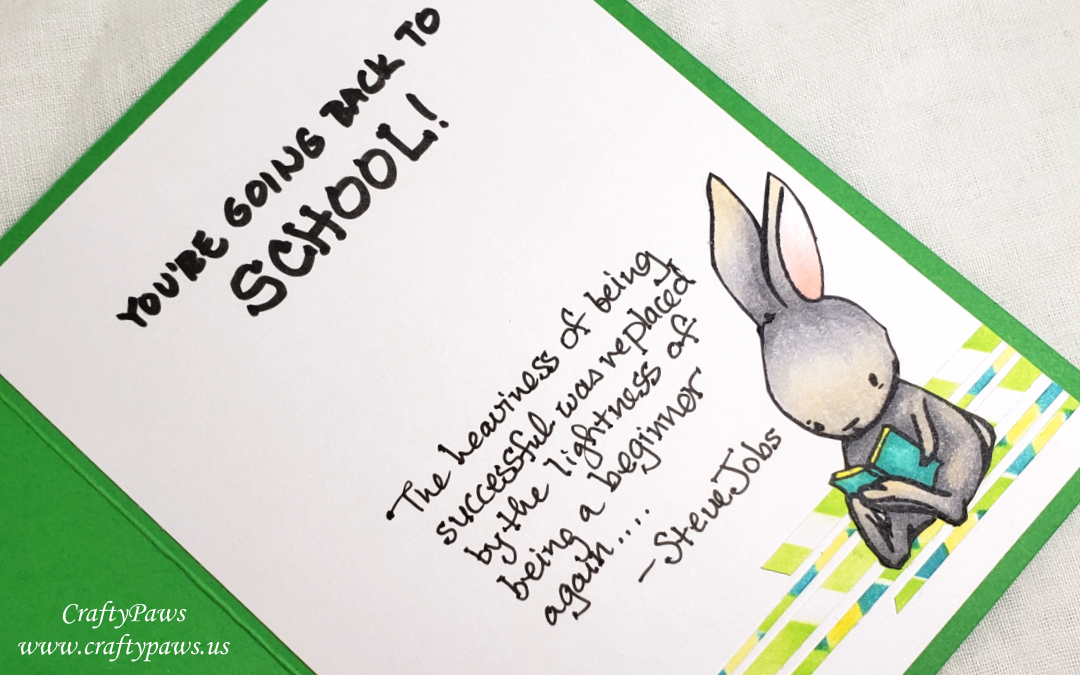 YOU'RE GOING BACK TO
SCHOOL!
The heaviness of being
successful was replaced
by the lightness of
being a beginner
again....
-Steve Jobs
CraftyPaws
www.craftypaws.us